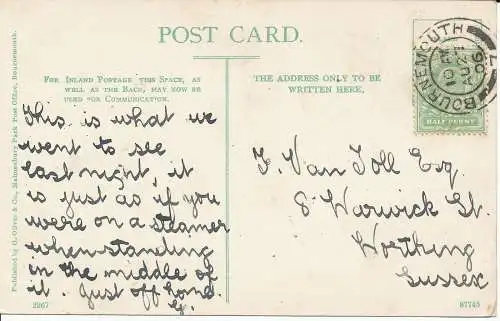 POST CARD.
FOR INLAND POSTAGE THIS SPACE, AS
WELL AS THE BACK, MAY NOW BE
USED FOR COMMUNICATION.
THE ADDRESS ONLY TO BE
WRITTEN HERE.
This is what we
went to see
last night, it
is just as if you
were on a steamer
when standing
in the middle of
it. Just off hand.
F. Van Toll Esq.
8 Warwick St.
Worthing
Sussex
BOURNEMOUTH
HALF PENNY
Published by G. Oliver & Co., Malmesbury Park Post Office, Bournemouth.
2267
87745